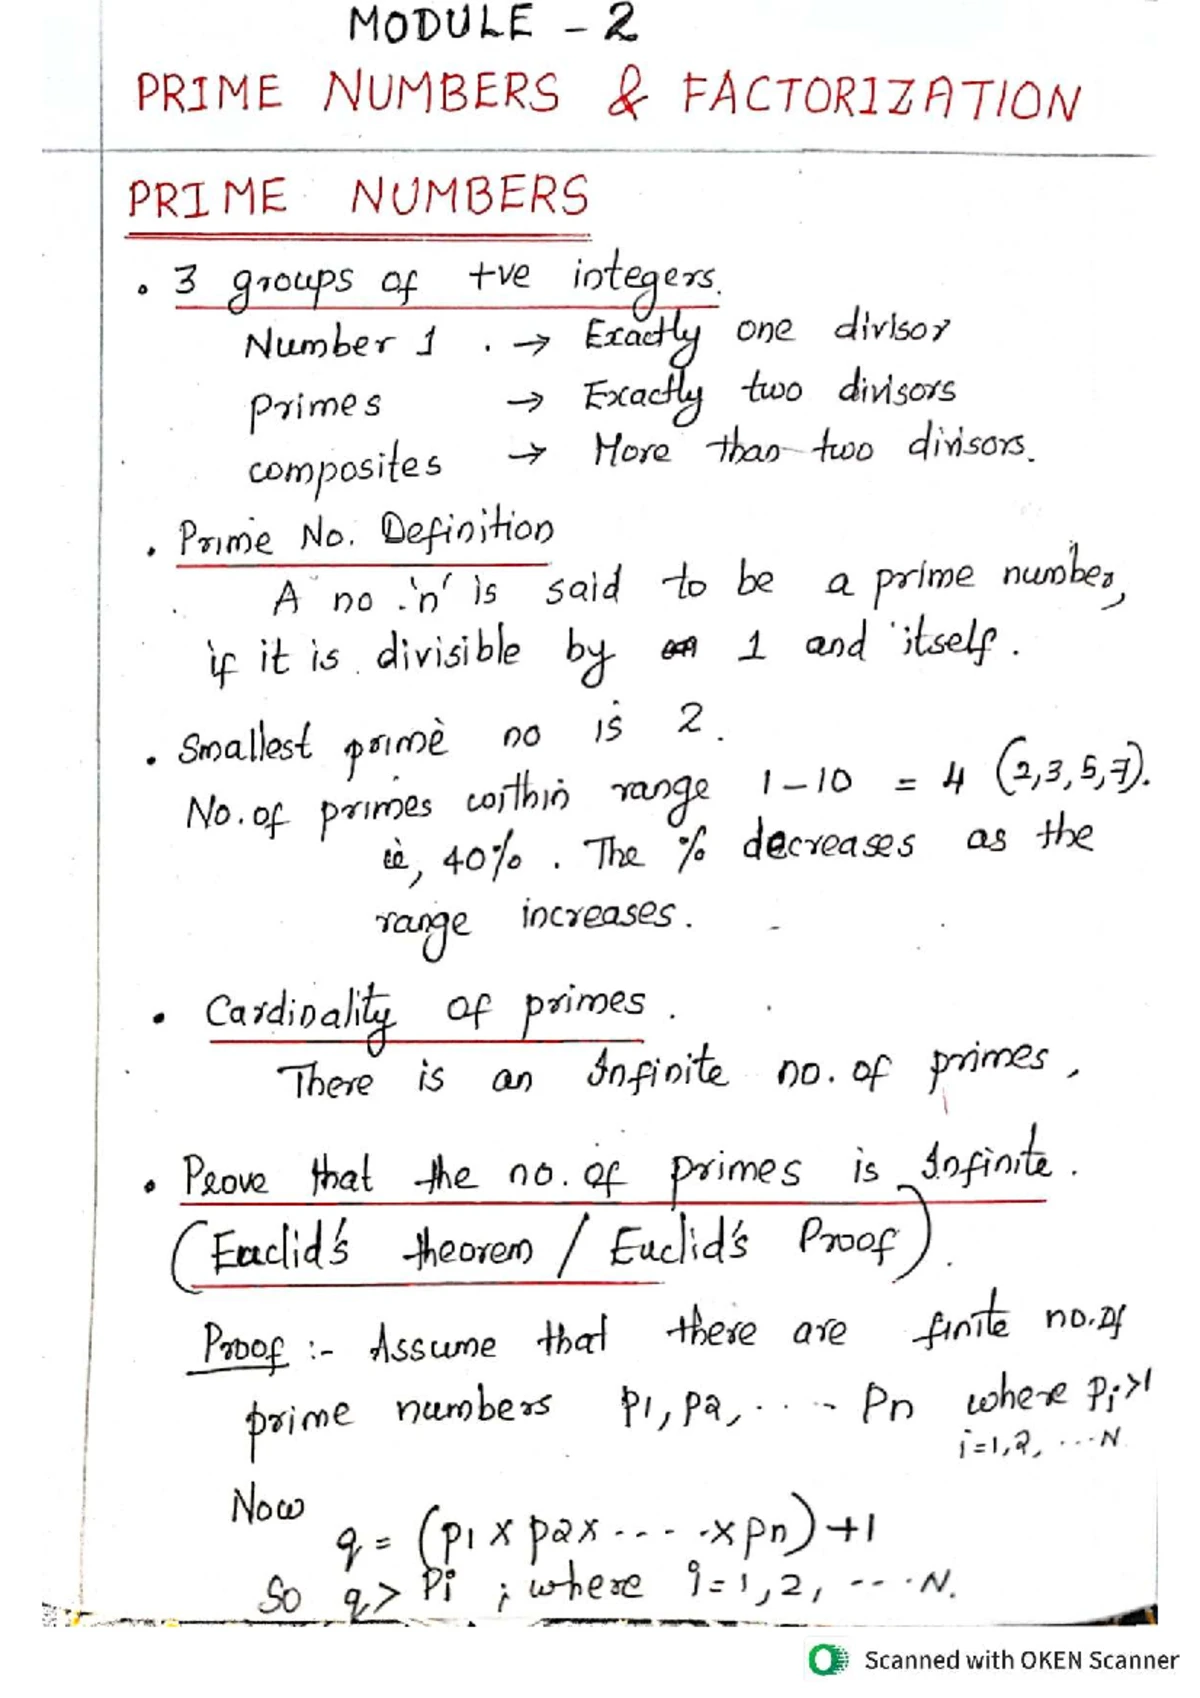 MODULE - 2
PRIME NUMBERS & FACTORIZATION
PRIME NUMBERS
• 3 groups of +ve integers.
Number 1 . → Exactly one divisor
Primes → Exactly two divisors
composites → More than two divisors.
• Prime No. Definition
A no. 'n' is said to be a prime number,
if it is divisible by 1 and itself.
• Smallest prime no is 2.
No. of primes within range 1-10 = 4 (2,3,5,7).
ie, 40%. The % decreases as the
range increases.
• Cardinality of primes.
There is an Infinite no. of primes,
• Prove that the no. of primes is Infinite.
(Euclid's theorem / Euclid's Proof).
Proof :- Assume that there are finite no. of
prime numbers P1, P2, .... Pn where Pi>1
i=1,2, ...N
Now
q = (P1 x P2 x ---- .x Pn) +1
So q > Pi ; where i=1,2, ---.N.
Scanned with OKEN Scanner